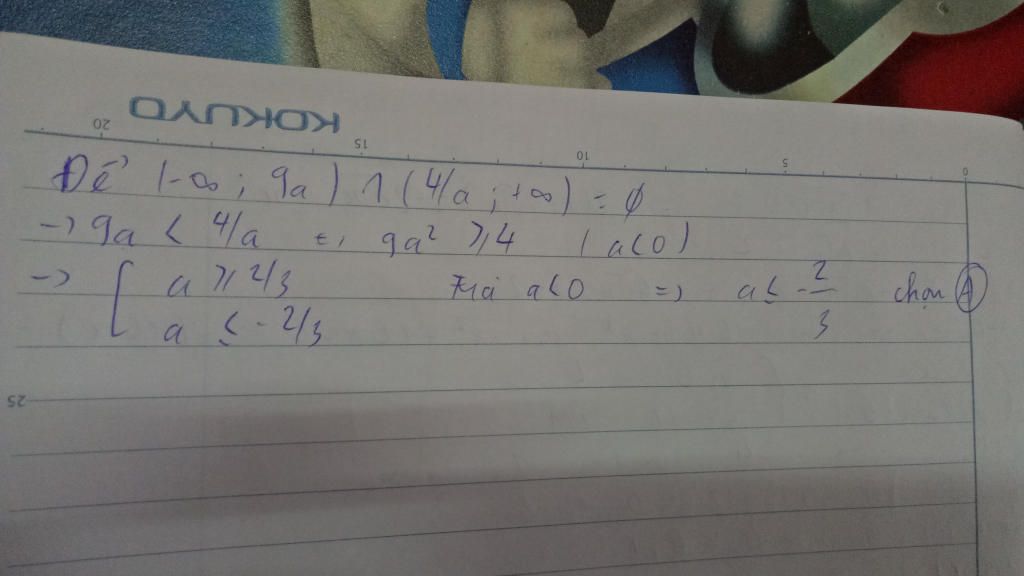 KOKUYO
20 15 10 5 0
Để (-∞; 9a) ∩ (4/a; +∞) = ∅
→ 9a < 4/a ⇔ 9a² ≥ 4 (a<0)
→ [ a ≥ 2/3 mà a<0 => a ≤ -2/3 chọn A
a ≤ -2/3
25